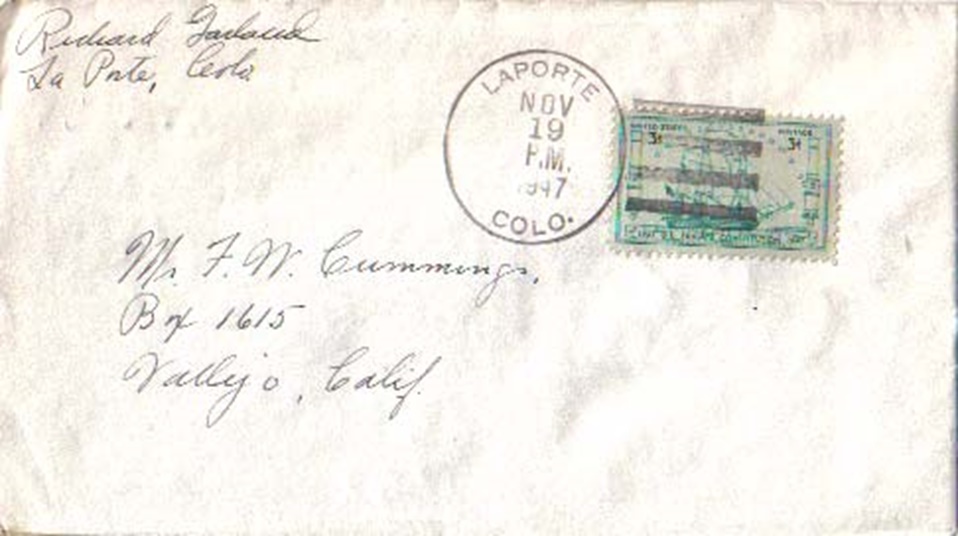 Richard Garland
La Porte, Colo
LAPORTE
NOV
19
P.M.
1947
COLO.
UNITED STATES POSTAGE
3¢ 3¢
Mr. F. W. Cummings,
Box 1615
Vallejo, Calif.